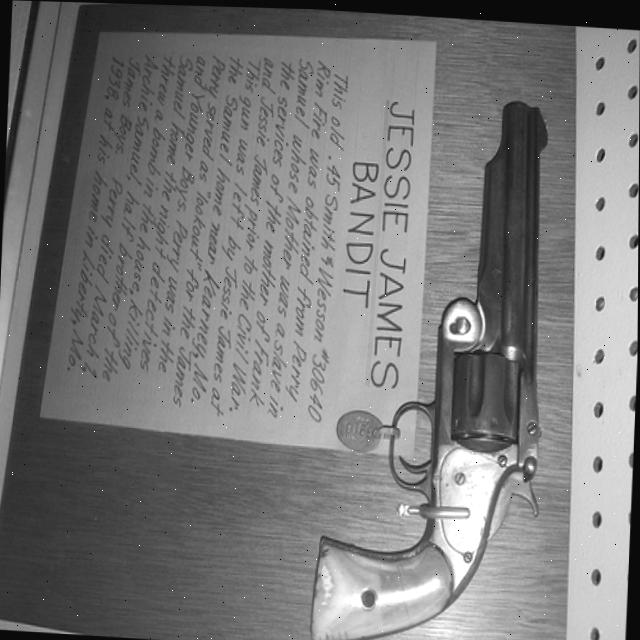 JESSIE JAMES
BANDIT
This old .45 Smith & Wesson #30640
Rim Fire was obtained from Perry
Samuel, whose Mother was a slave in
the services of the mother of Frank
and Jessie James prior to the Civil War.
This gun was left by Jessie James at
the Samuel home near Kearney, Mo.
Perry served as lookout for the James
and Younger Boys. Perry was in the
Samuel home the night detectives
threw a bomb in the house, killing
Archie Samuel, half brother of the
James Boys. Perry died March 1,
1936 at his home in Liberty, Mo.